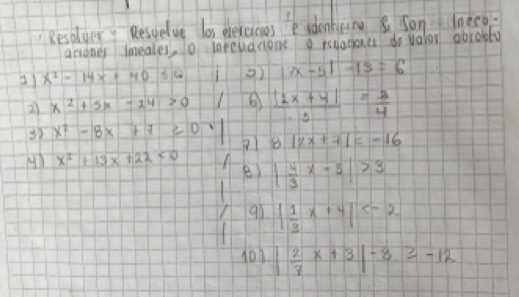 Resolver: Resuelve los ejercicios e identifica si son inecu-
aciones lineales, o inecuaciones o ecuaciones de valor absoluto
1) x² - 14x + 40 ≤ 0
2) x² + 5x - 24 > 0
3) x² - 8x + 7 ≥ 0
4) x² + 13x + 22 < 0
5) |7x - 5| - 13 = 6
6) |2x + 4| / 5 = 3/4
7) 8 |2x + 7| = -16
8) |4/3 x - 3| > 3
9) |1/3 x + 4| < -2
10) |2/7 x + 3| - 8 ≥ -12